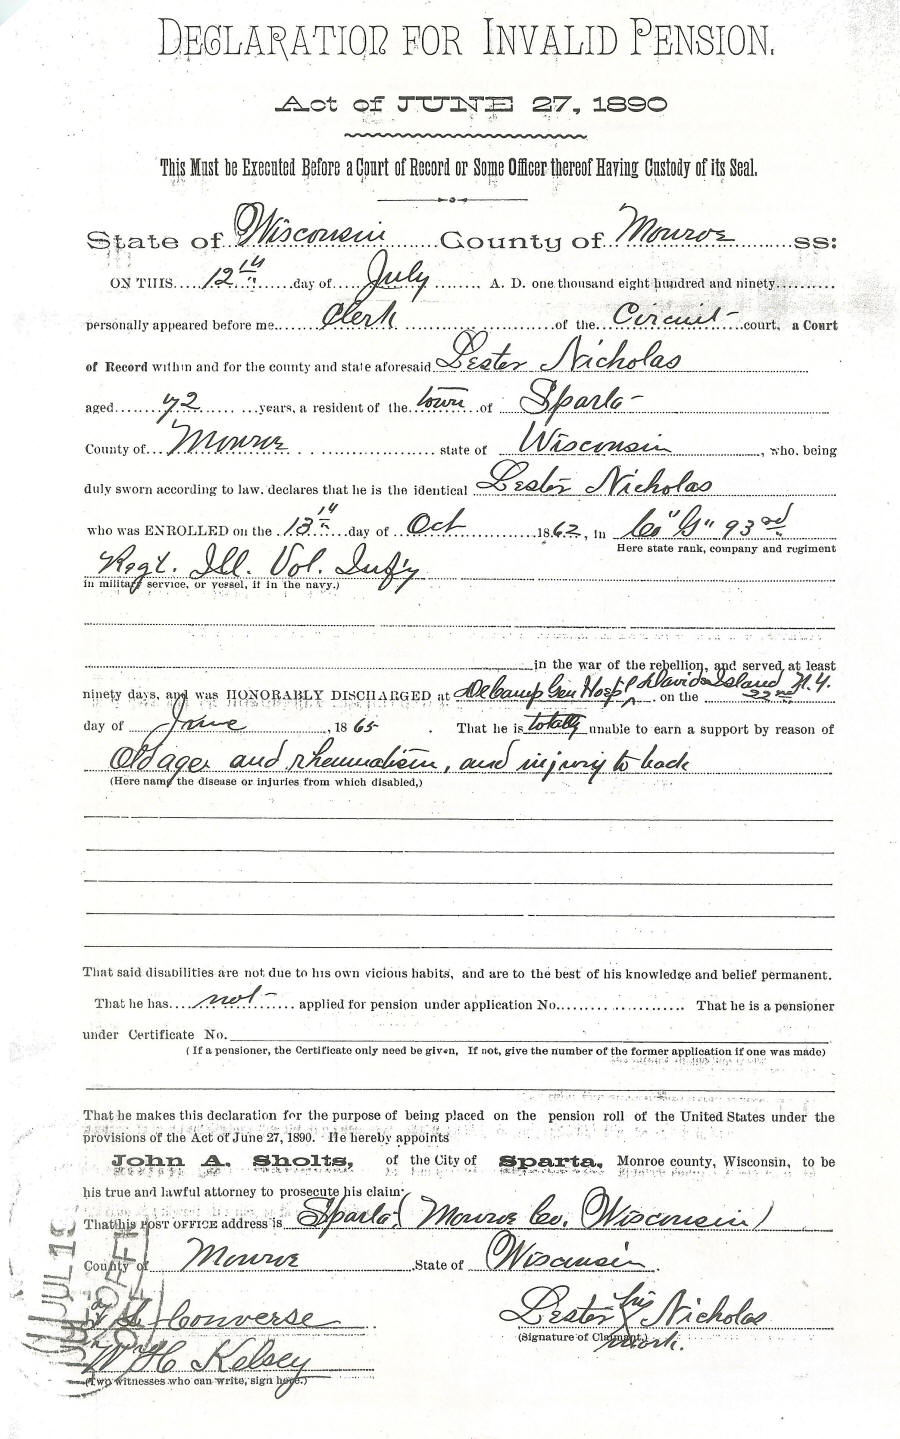 DECLARATION FOR INVALID PENSION.
Act of JUNE 27, 1890
This Must be Executed Before a Court of Record or Some Officer thereof Having Custody of its Seal.
State of Wisconsin County of Monroe ss:
ON THIS 12th day of July A. D. one thousand eight hundred and ninety
personally appeared before me Clerk of the Circuit court, a Court
of Record within and for the county and state aforesaid Lester Nicholas
aged 72 years, a resident of the town of Sparta
County of Monroe state of Wisconsin, who being
duly sworn according to law, declares that he is the identical Lester Nicholas
who was ENROLLED on the 13th day of Oct 1862, in Co "G" 93rd
Here state rank, company and regiment
Regt. Ill. Vol. Infy
in military service, or vessel, if in the navy.)
in the war of the rebellion, and served at least
ninety days, and was HONORABLY DISCHARGED at DeCamp Gen Hospl Davids Island N.Y. on the 22nd
day of June, 1865. That he is totally unable to earn a support by reason of
Old age and rheumatism, and injury to back
(Here name the disease or injuries from which disabled,)
That said disabilities are not due to his own vicious habits, and are to the best of his knowledge and belief permanent.
That he has not applied for pension under application No. That he is a pensioner
under Certificate No.
(If a pensioner, the Certificate only need be given, If not, give the number of the former application if one was made)
That he makes this declaration for the purpose of being placed on the pension roll of the United States under the
provisions of the Act of June 27, 1890. He hereby appoints
John A. Sholts, of the City of Sparta, Monroe county, Wisconsin, to be
his true and lawful attorney to prosecute his claim.
That his POST OFFICE address is Sparta (Monroe Co. Wisconsin)
County of Monroe State of Wisconsin.
Converse
Lester his X mark. Nicholas
(Signature of Claimant.)
W H Kelsey
(Two witnesses who can write, sign here.)
JUL